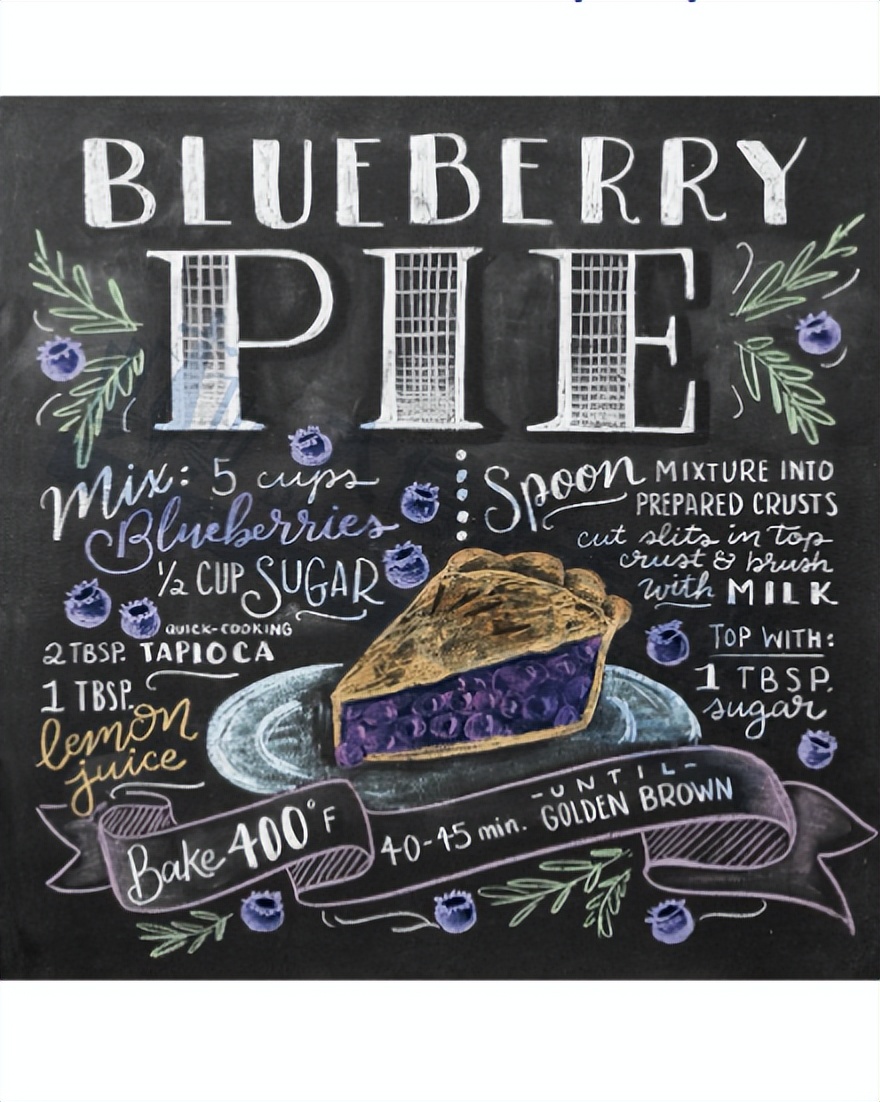 BLUEBERRY
PIE
Mix: 5 cups
Blueberries
1/2 CUP SUGAR
QUICK-COOKING
2 TBSP. TAPIOCA
1 TBSP.
lemon
juice
Spoon MIXTURE INTO
PREPARED CRUSTS
cut slits in top
crust & brush
with MILK
TOP WITH:
1 TBSP.
sugar
Bake 400° F
40-45 min. -UNTIL-
GOLDEN BROWN